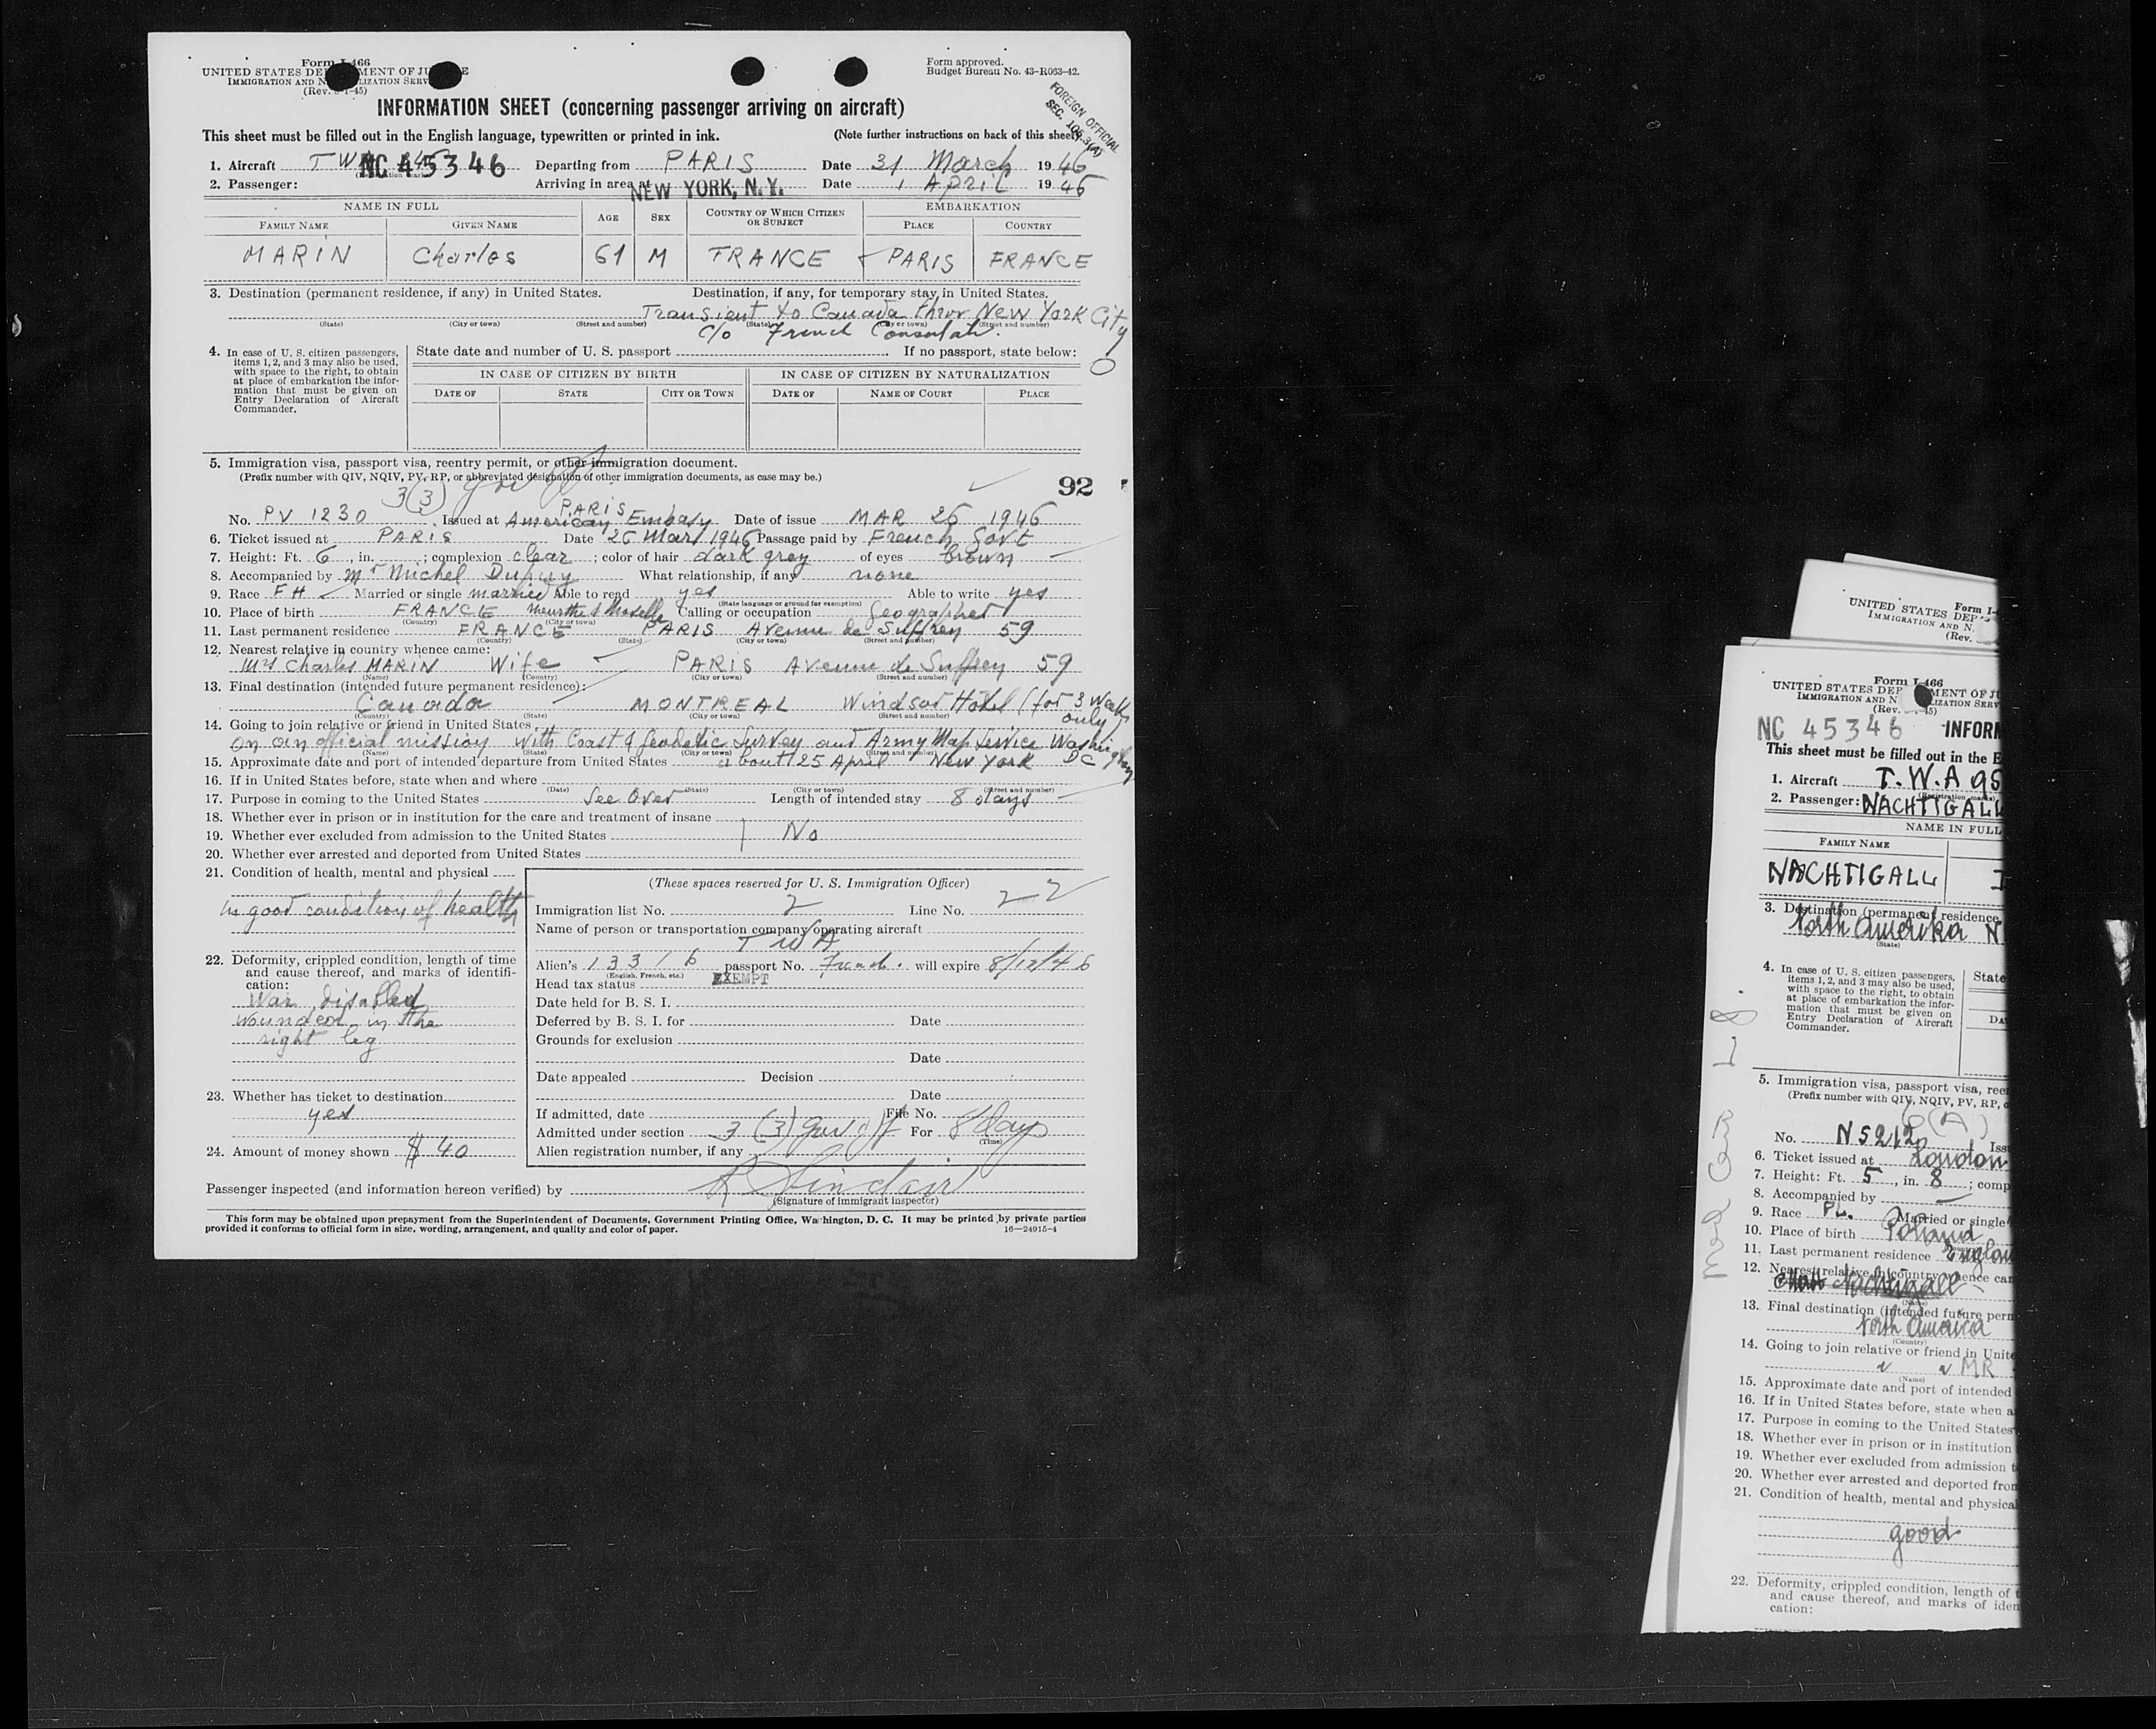 Form I-466
UNITED STATES DEPARTMENT OF JUSTICE
IMMIGRATION AND NATURALIZATION SERVICE
(Rev. 5-1-45)
Form approved.
Budget Bureau No. 43-R063-42.
FOREIGN OFFICIAL
SEC. 105.3(A)
INFORMATION SHEET (concerning passenger arriving on aircraft)
This sheet must be filled out in the English language, typewritten or printed in ink. (Note further instructions on back of this sheet)
1. Aircraft TWA NC 45346 Departing from PARIS Date 31 March 1946
2. Passenger: Arriving in area at NEW YORK, N.Y. Date 1 April 1946
NAME IN FULL AGE SEX COUNTRY OF WHICH CITIZEN OR SUBJECT EMBARKATION
FAMILY NAME GIVEN NAME PLACE COUNTRY
MARIN Charles 61 M FRANCE PARIS FRANCE
3. Destination (permanent residence, if any) in United States. Destination, if any, for temporary stay in United States.
Transient to Canada thror New York City
(State) (City or town) (Street and number) (State) (City or town) (Street and number)
c/o French Consulate.
4. In case of U. S. citizen passengers, items 1, 2, and 3 may also be used, with space to the right, to obtain at place of embarkation the information that must be given on Entry Declaration of Aircraft Commander.
State date and number of U. S. passport If no passport, state below:
IN CASE OF CITIZEN BY BIRTH IN CASE OF CITIZEN BY NATURALIZATION
DATE OF STATE CITY OR TOWN DATE OF NAME OF COURT PLACE
5. Immigration visa, passport visa, reentry permit, or other immigration document.
(Prefix number with QIV, NQIV, PV, RP, or abbreviated designation of other immigration documents, as case may be.)
3(3) gov off 92
No. PV 1230 Issued at American Embasy PARIS Date of issue MAR 26 1946
6. Ticket issued at PARIS Date 26 Mar 1946 Passage paid by French Govt
7. Height: Ft. 6, in. ; complexion clear ; color of hair dark grey of eyes brown
8. Accompanied by Mr Michel Dupuy What relationship, if any none
9. Race FH Married or single married Able to read yes Able to write yes
(State language or ground for exemption)
10. Place of birth FRANCE Meurthe & Moselle Calling or occupation Geographer
(Country) (City or town)
11. Last permanent residence FRANCE PARIS Avenue de Suffren 59
(Country) (State) (City or town) (Street and number)
12. Nearest relative in country whence came:
Mrs Charles MARIN Wife PARIS Avenue de Suffren 59
(Name) (Country) (City or town) (Street and number)
13. Final destination (intended future permanent residence):
Canada MONTREAL Windsor Hotel (for 3 Weeks only)
(Country) (State) (City or town) (Street and number)
14. Going to join relative or friend in United States
On an official mission with Coast & Geodetic Survey and Army Map Service Washington DC
(Name) (State) (City or town) (Street and number)
15. Approximate date and port of intended departure from United States about 25 April New York
16. If in United States before, state when and where
(Date) (State) (City or town) (Street and number)
17. Purpose in coming to the United States See Over Length of intended stay 8 days
18. Whether ever in prison or in institution for the care and treatment of insane
19. Whether ever excluded from admission to the United States No
20. Whether ever arrested and deported from United States
21. Condition of health, mental and physical
in good condition of health
22. Deformity, crippled condition, length of time and cause thereof, and marks of identification:
War disabled
wounded in the
right leg
23. Whether has ticket to destination
yes
24. Amount of money shown $ 40
(These spaces reserved for U. S. Immigration Officer)
Immigration list No. 2 Line No. 22
Name of person or transportation company operating aircraft
TWA
Alien's 13316 passport No. French will expire 8/12/46
(English, French, etc.)
Head tax status EXEMPT
Date held for B. S. I.
Deferred by B. S. I. for Date
Grounds for exclusion
Date
Date appealed Decision
Date
If admitted, date File No.
Admitted under section 3(3) gov off For 8 days
(Time)
Alien registration number, if any
Passenger inspected (and information hereon verified) by R Sinclair
(Signature of immigrant inspector)
This form may be obtained upon prepayment from the Superintendent of Documents, Government Printing Office, Washington, D. C. It may be printed by private parties
provided it conforms to official form in size, wording, arrangement, and quality and color of paper. 16—24915-4
Form I-
UNITED STATES DEP
IMMIGRATION AND N
(Rev.
Form I-466
UNITED STATES DEP MENT OF JU
IMMIGRATION AND N LIZATION SERV
(Rev. 45)
NC 45346 INFORM
This sheet must be filled out in the E
1. Aircraft T.W.A 95
2. Passenger: NACHTIGALL
NAME IN FULL
FAMILY NAME
NACHTIGALL
3. Destination (permanent residence
North Amerika N
(State)
4. In case of U. S. citizen passengers, items 1, 2, and 3 may also be used, with space to the right, to obtain at place of embarkation the information that must be given on Entry Declaration of Aircraft Commander.
State
DA
5. Immigration visa, passport visa, ree
(Prefix number with QIV, NQIV, PV, RP, o
6(A)
No. N5212 Iss
6. Ticket issued at London
7. Height: Ft. 5, in. 8 ; comp
8. Accompanied by
9. Race PL. Married or single
10. Place of birth Poland
11. Last permanent residence Englan
12. Nearest relative in country whence can
Nachtigall
(Name)
13. Final destination (intended future perm
North America
(Country)
14. Going to join relative or friend in Unite
MR
(Name)
15. Approximate date and port of intended
16. If in United States before, state when a
17. Purpose in coming to the United States
18. Whether ever in prison or in institution
19. Whether ever excluded from admission t
20. Whether ever arrested and deported from
21. Condition of health, mental and physical
good
22. Deformity, crippled condition, length of t
and cause thereof, and marks of iden
cation: